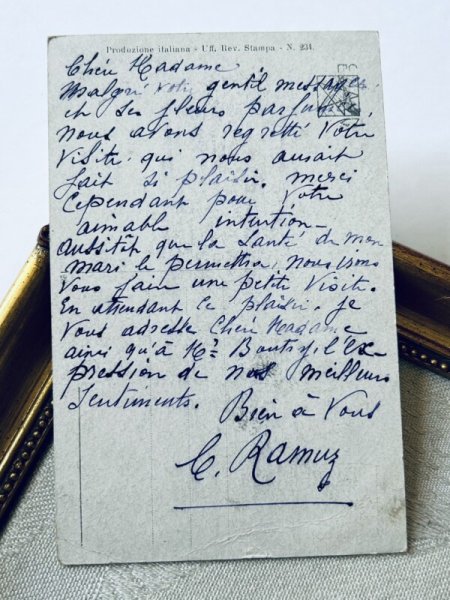 Produzione italiana - Uff. Rev. Stampa - N. 234.
Chéri Madame
Malgré votre gentil message
et ses fleurs parfumées
nous avons regretté Votre
Visite qui nous aurait
fait si plaisir. merci
Cependant pour Votre
aimable intention-
aussitôt que la Santé de mon
mari le permettra, nous irons
Vous faire une petite Visite.
En attendant ce plaisir, je
Vous adresse Chéri Madame
ainsi qu'à Mr l'ex-
pression de nos meilleurs
Sentiments. Bien à Vous
C. Ramuz